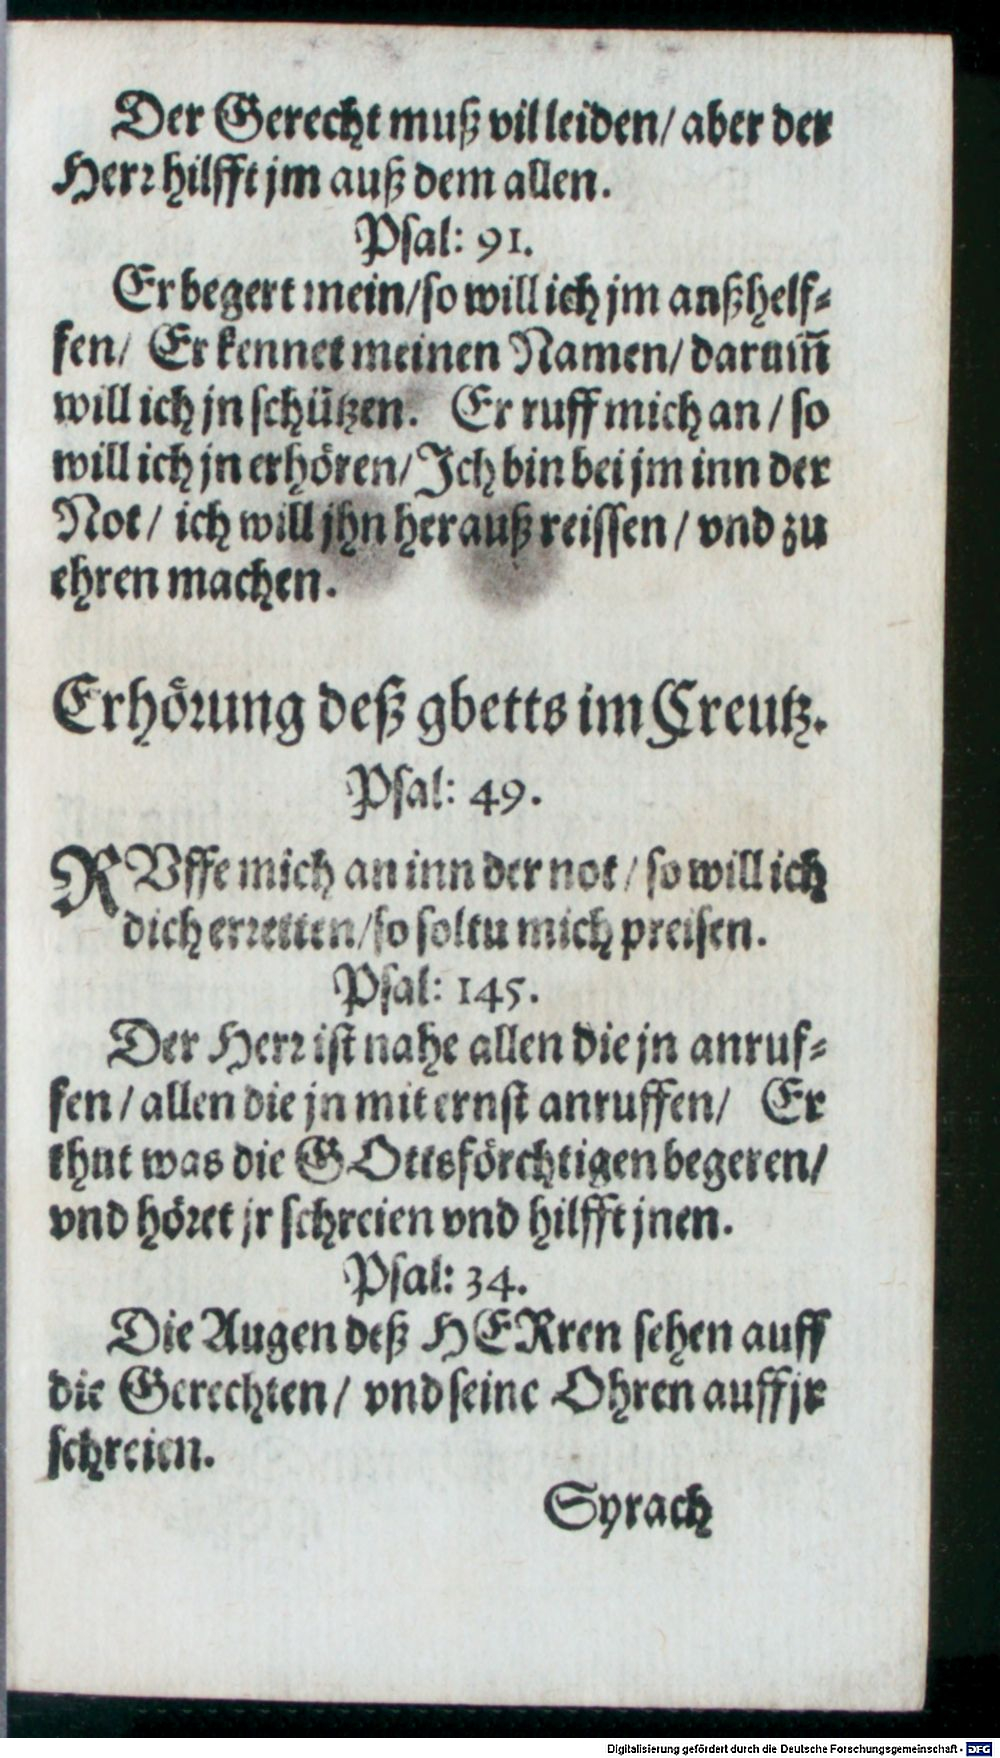 Der Gerecht muß vil leiden/ aber der
Herr hilfft jm auß dem allen.
Psal: 91.
Er begert mein/ so will ich jm anßhelf⸗
fen/ Er kennet meinen Namen/ darum̃
will ich jn schützen. Er ruff mich an / so
will ich jn erhören/ Ich bin bei jm inn der
Not/ ich will jhn herauß reissen / vnd zu
ehren machen.
Erhörung deß gbetts im Creutz.
Psal: 49.
RVffe mich an inn der not / so will ich
dich erretten/ so soltu mich preisen.
Psal: 145.
Der Herr ist nahe allen die jn anruf⸗
fen / allen die jn mit ernst anruffen/ Er
thut was die GOttsförchtigen begeren/
vnd höret jr schreien vnd hilfft jnen.
Psal: 34.
Die Augen deß HERren sehen auff
die Gerechten/ vnd seine Ohren auff jr
schreien.
Syrach
Digitalisierung gefördert durch die Deutsche Forschungsgemeinschaft - DFG